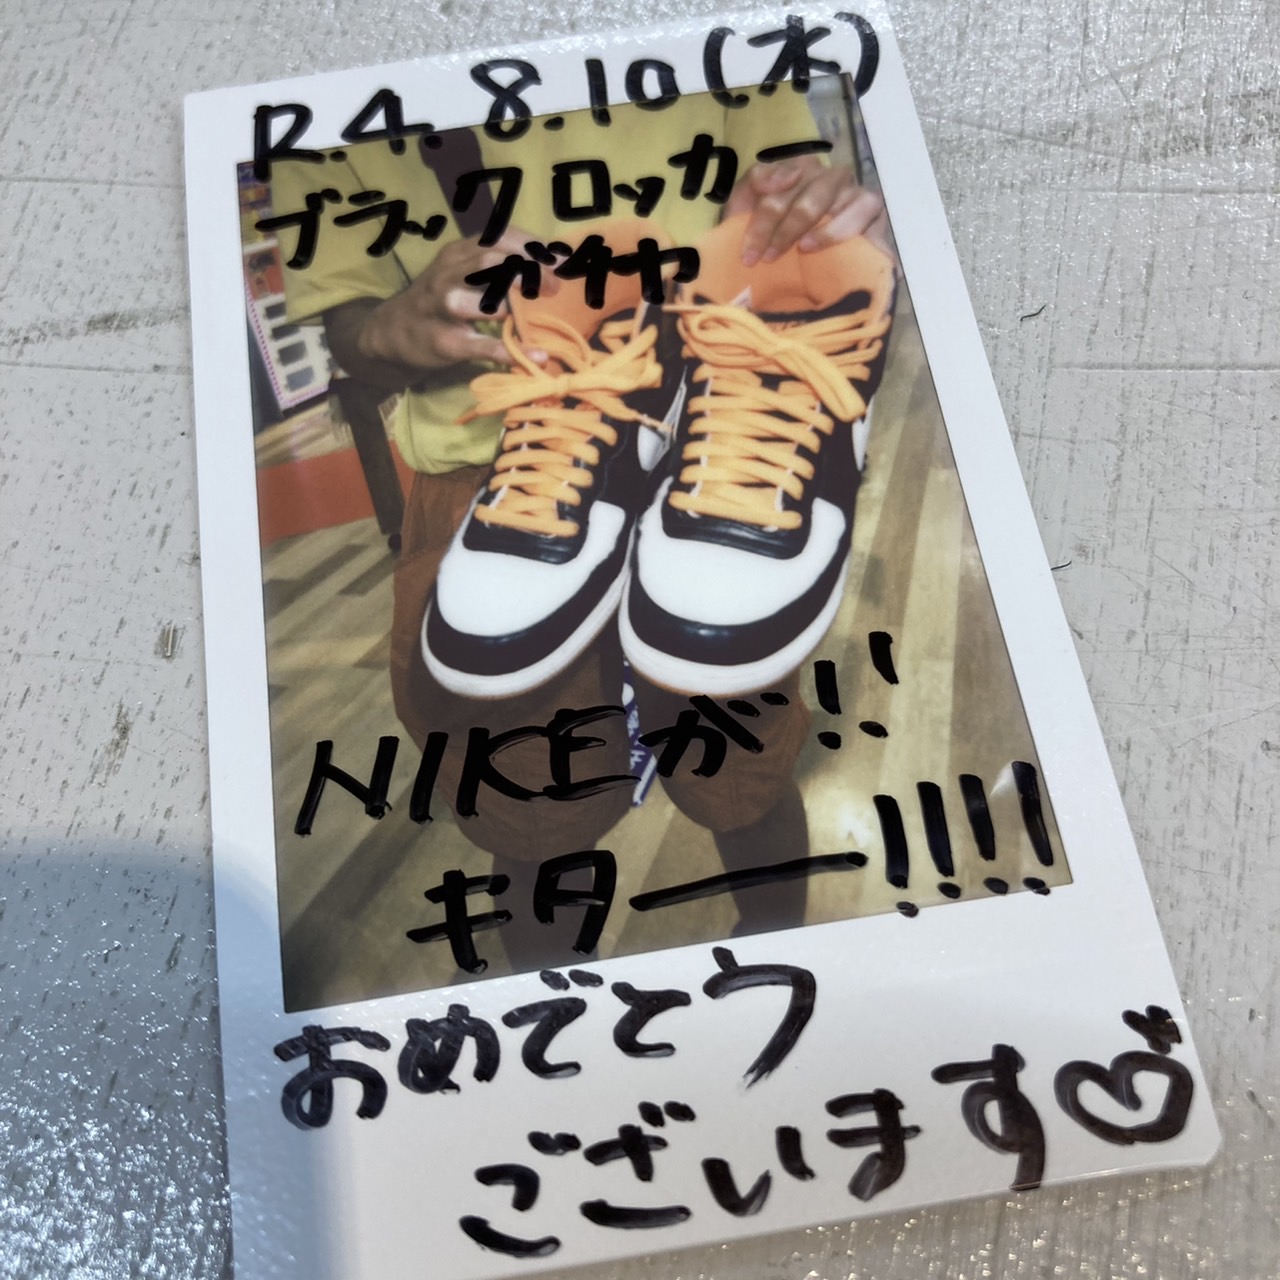 R.4.8.10(水)
ブラックロッカー
ガチャ
NIKEが!!
キター!!!!
おめでとう
ございます♡